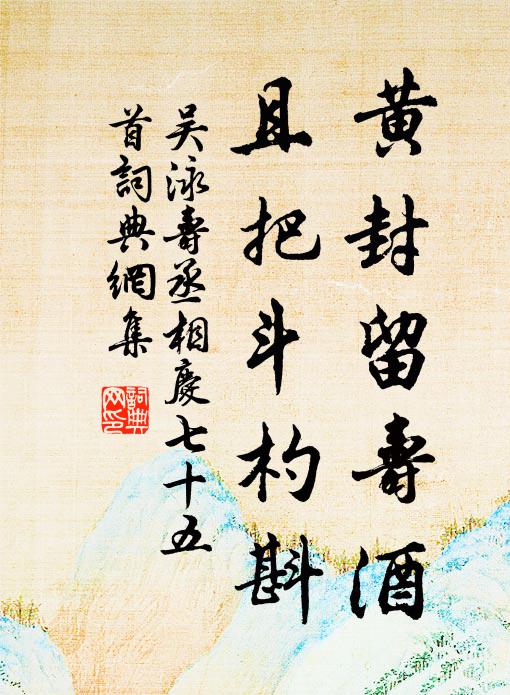 黄封留壽酒
且把斗杓斟
吴泳壽丞相慶七十五
首詞典網集
詞典網印